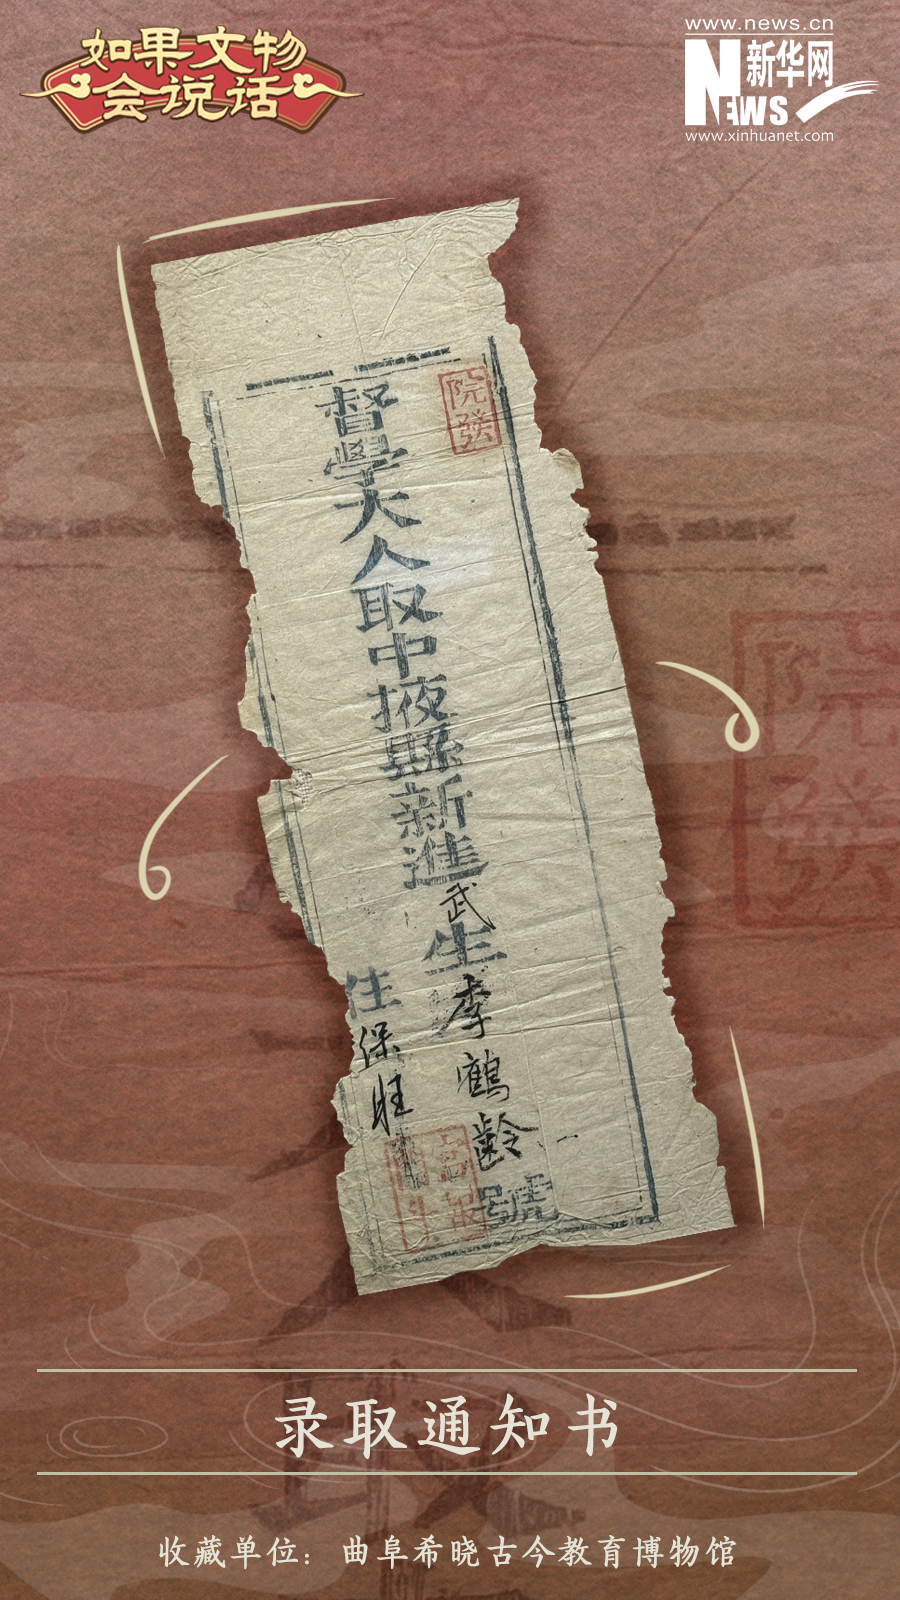 如果文物
会说话
www.news.cn
新华网
NEWS
www.xinhuanet.com
院發
督學大人取中掖縣新進武生李鶴齡號
住保旺
录取通知书
收藏单位：曲阜希晓古今教育博物馆